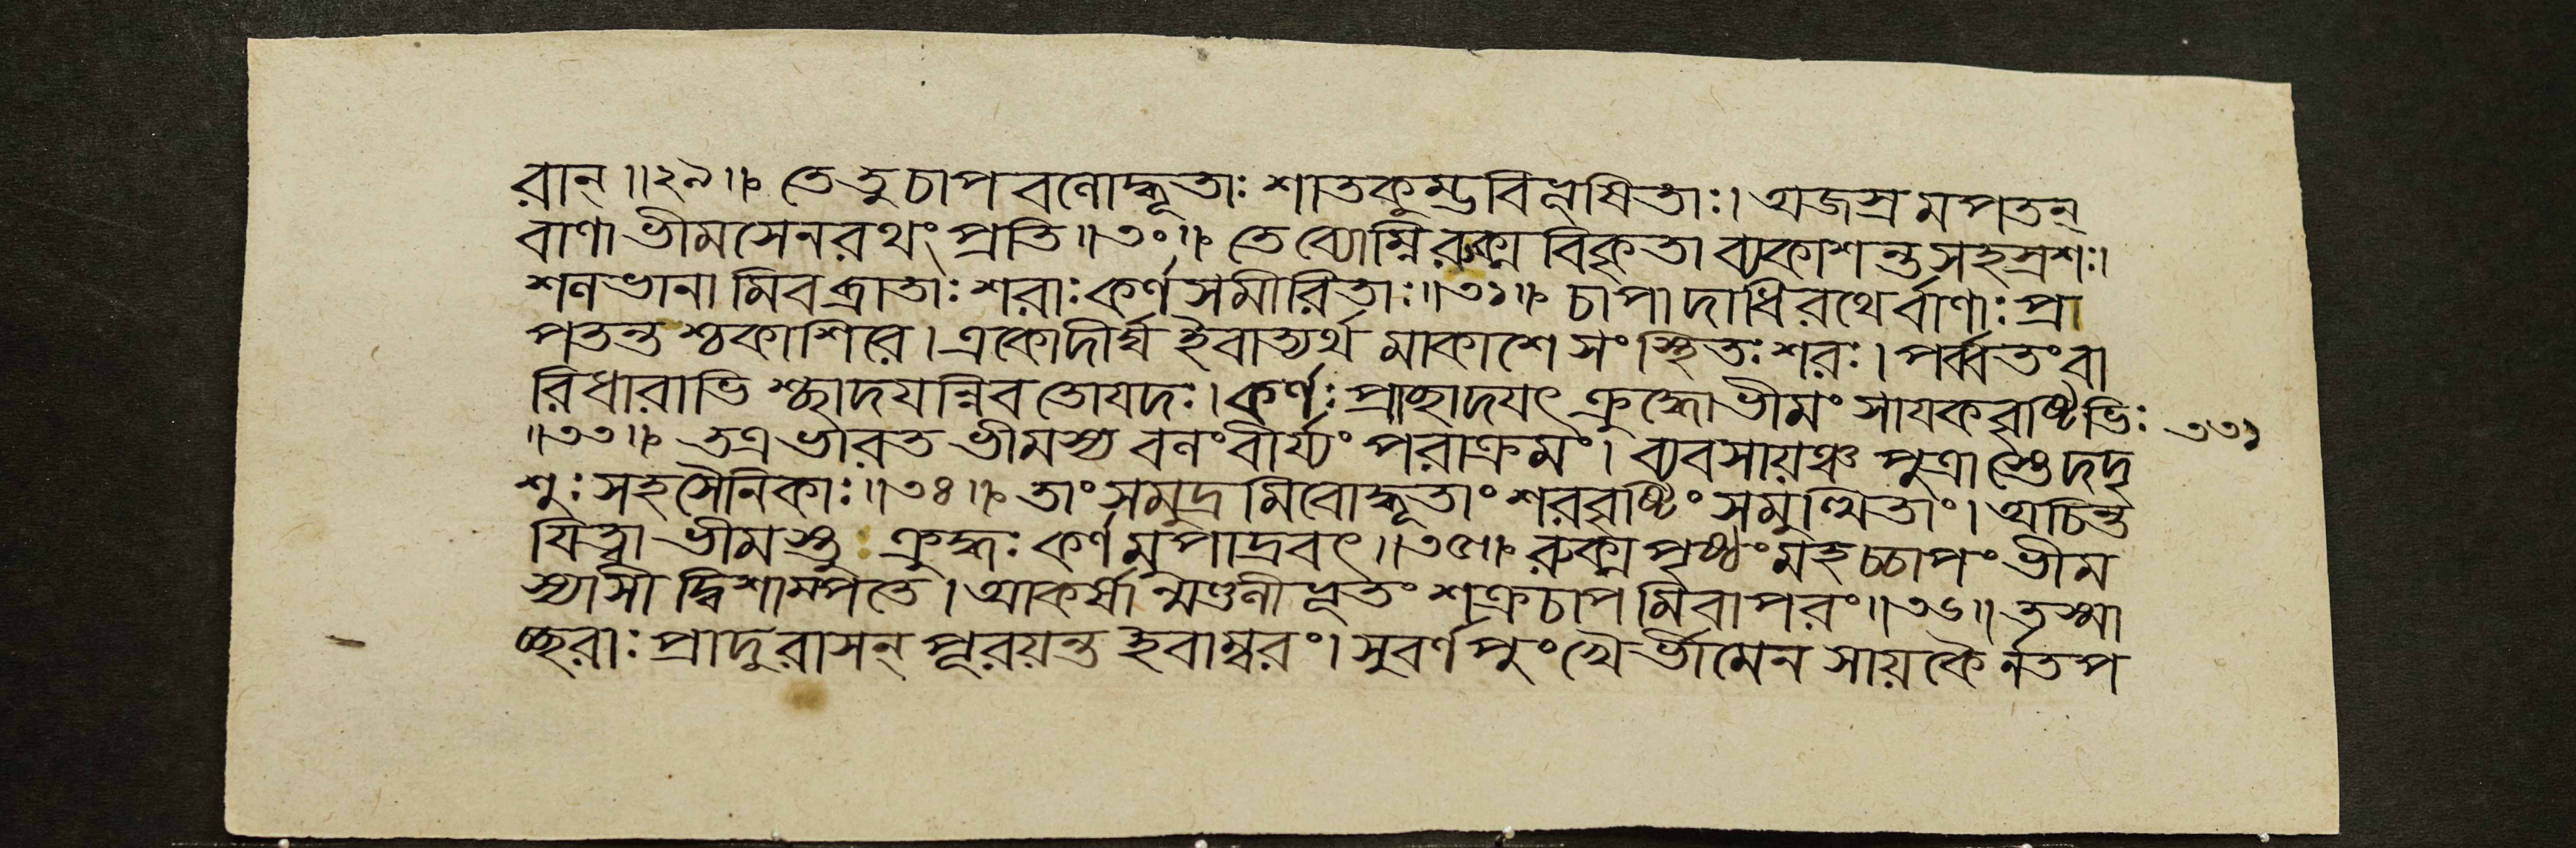 রান্ ॥২৯॥ তে তু চাপবলোদ্ধূতাঃ শাতকুম্ভবিভূষিতাঃ। অজস্রমপতন্
বাণা ভীমসেনরথং প্রতি ॥৩০॥ তে ব্যোম্নি রুক্মবিকৃতা ব্যকাশন্ত সহস্রশঃ।
শলভানামিব ব্রাতাঃ শরাঃ কর্ণসমীরিতাঃ ॥৩১॥ চাপাদাধিরথের্বাণাঃ প্রা
পতন্তশ্চকাশিরে। একো দীর্ঘ ইবাত্যর্থমাকাশে সংস্থিতঃ শরঃ। পর্ব্বতং বা
রিধারাভিশ্ছাদয়ন্নিব তোয়দঃ। কর্ণঃ প্রাচ্ছাদয়ৎ ক্রুদ্ধো ভীমং সায়কবৃষ্টিভিঃ
॥৩৩॥ তত্র ভারত ভীমস্য বলং বীর্য্যং পরাক্রমং। ব্যবসায়ঞ্চ পুত্রাস্তে দদৃ
শুঃ সহসৈনিকাঃ ॥৩৪॥ তাং সমুদ্রমিবোদ্ধূতাং শরবৃষ্টিং সমুত্থিতাং। অচিন্ত
য়িত্বা ভীমস্তু ক্রুদ্ধঃ কর্ণমুপাদ্রবৎ ॥৩৫॥ রুক্মপৃষ্ঠং মহচ্চাপং ভীম
স্যাসীদ্বিশাম্পতে। আকর্ষান্মণ্ডলীভূতং শক্রচাপমিবাপরং ॥৩৬॥ তস্মা
চ্ছরাঃ প্রাদুরাসন্ পূরয়ন্ত ইবাম্বরং। সুবর্ণপুংখৈর্ভীমেন সায়কৈর্নতপ
৩৩১